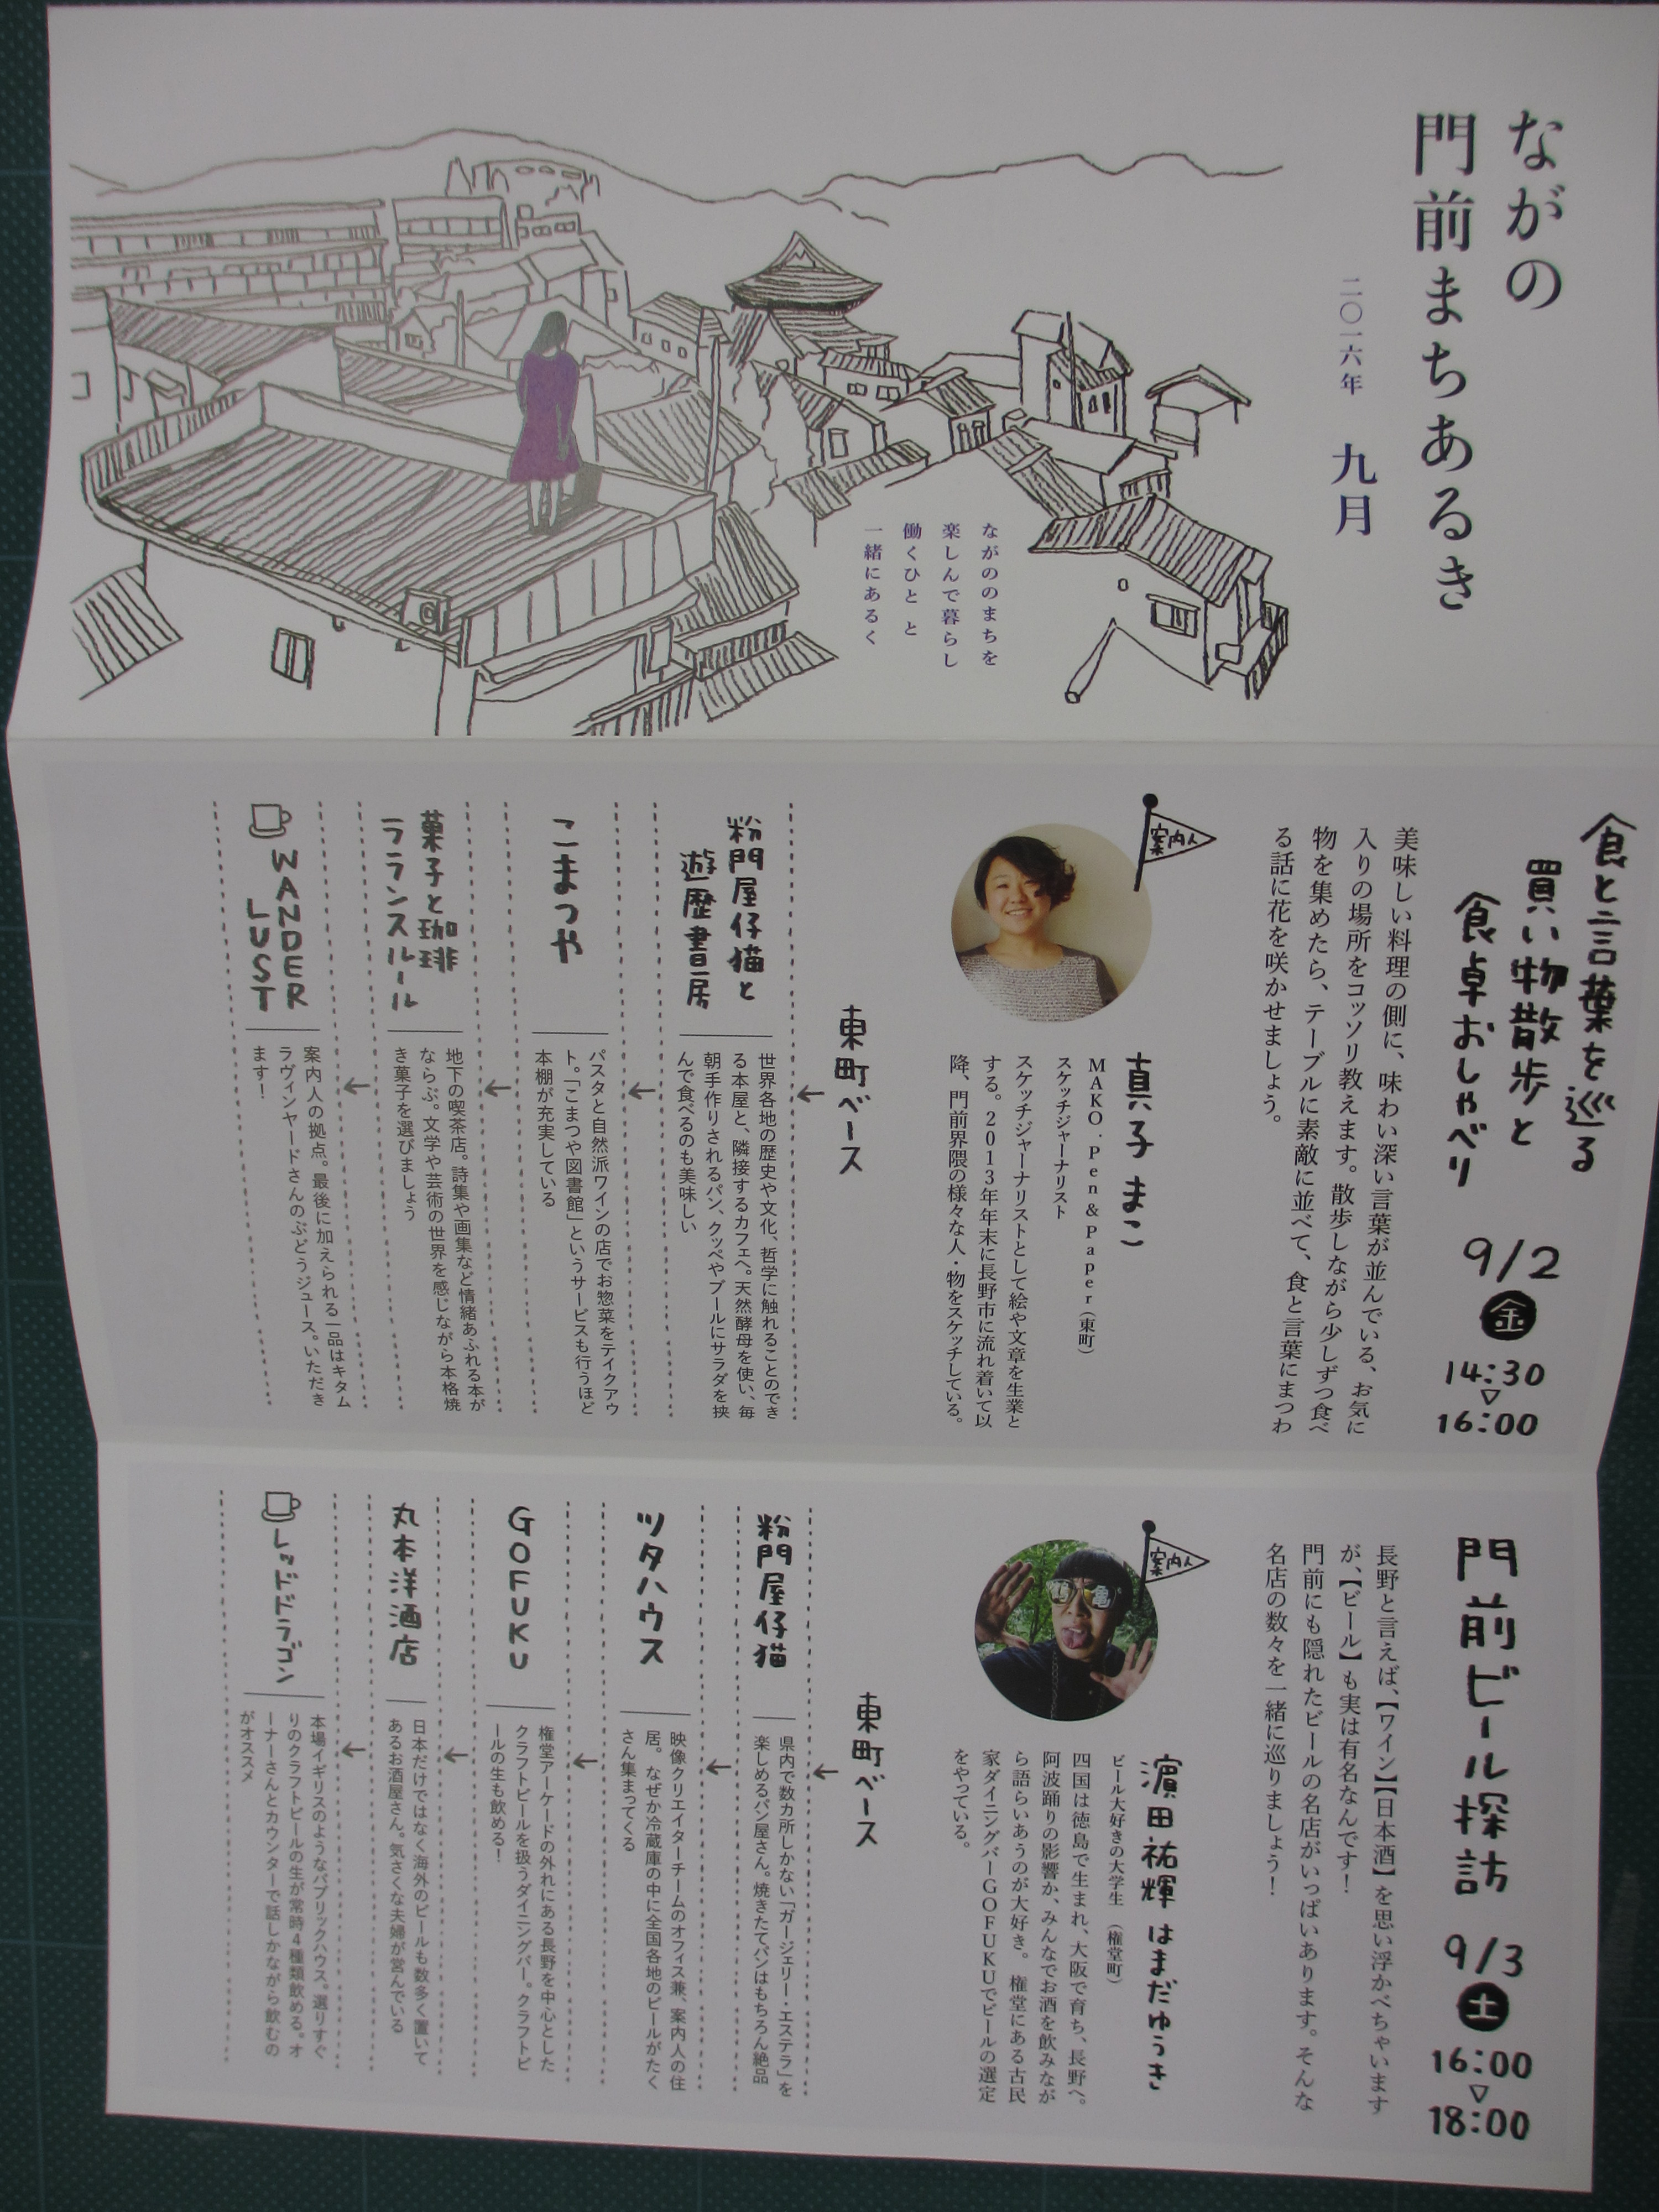 ながの
門前まちあるき
二〇一六年 九月
ながののまちを
楽しんで暮らし
働くひと と
一緒にあるく
食と言葉を巡る
買い物散歩と
食卓おしゃべり
9/2
金
14:30
▽
16:00
美味しい料理の側に、味わい深い言葉が並んでいる、お気に
入りの場所をコッソリ教えます。散歩しながら少しずつ食べ
物を集めたら、テーブルに素敵に並べて、食と言葉にまつわ
る話に花を咲かせましょう。
案内人
真子 まこ
MAKO.Pen&Paper(東町)
スケッチジャーナリスト
スケッチジャーナリストとして絵や文章を生業と
する。2013年年末に長野市に流れ着いて以
降、門前界隈の様々な人・物をスケッチしている。
東町ベース
←
粉門屋仔猫と
遊歴書房
世界各地の歴史や文化、哲学に触れることのでき
る本屋と、隣接するカフェへ。天然酵母を使い、毎
朝手作りされるパン、クッペやブールにサラダを挟
んで食べるのも美味しい
←
こまつや
パスタと自然派ワインの店でお惣菜をテイクアウ
ト。「こまつや図書館」というサービスも行うほど
本棚が充実している
←
菓子と珈琲
ラランスルール
地下の喫茶店。詩集や画集など情緒あふれる本が
ならぶ。文学や芸術の世界を感じながら本格焼
き菓子を選びましょう
←
WANDER
LUST
案内人の拠点。最後に加えられる一品はキタム
ラヴィンヤードさんのぶどうジュース。いただき
ます!
門前ビール探訪
9/3
土
16:00
▽
18:00
長野と言えば、【ワイン】【日本酒】を思い浮かべちゃいます
が、【ビール】も実は有名なんです!
門前にも隠れたビールの名店がいっぱいあります。そんな
名店の数々を一緒に巡りましょう!
案内人
濵田祐輝 はまだゆうき
ビール大好きの大学生 (権堂町)
四国は徳島で生まれ、大阪で育ち、長野へ。
阿波踊りの影響か、みんなでお酒を飲みなが
ら語らいあうのが大好き。 権堂にある古民
家ダイニングバーGOFUKUでビールの選定
をやっている。
東町ベース
←
粉門屋仔猫
県内で数カ所しかない「ガージェリー・エステラ」を
楽しめるパン屋さん。焼きたてパンはもちろん絶品
←
ツタハウス
映像クリエイターチームのオフィス兼、案内人の住
居。なぜか冷蔵庫の中に全国各地のビールがたく
さん集まってくる
←
GOFUKU
権堂アーケードの外れにある長野を中心とした
クラフトビールを扱うダイニングバー。クラフトビ
ールの生も飲める!
←
丸本洋酒店
日本だけではなく海外のビールも数多く置いて
あるお酒屋さん。気さくな夫婦が営んでいる
←
レッドドラゴン
本場イギリスのようなパブリックハウス。選りすぐ
りのクラフトビールの生が常時4種類飲める。オ
ーナーさんとカウンターで話しかながら飲むの
がオススメ